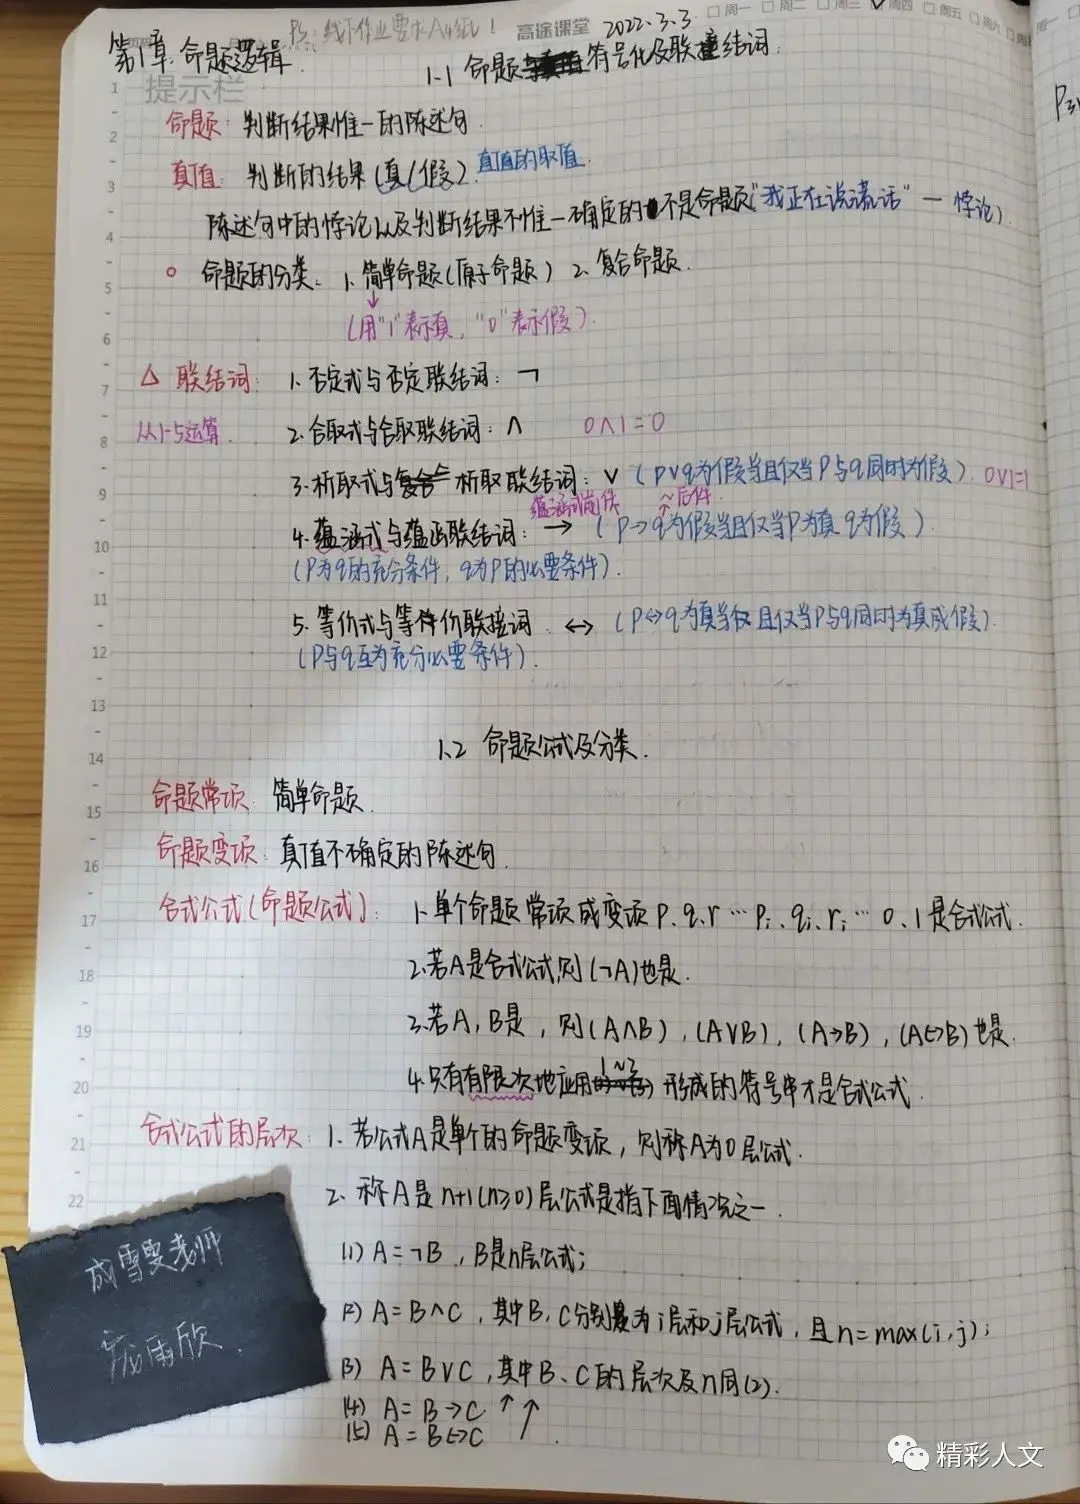 Ps: 线下作业要求A4纸!
高途课堂
2022.3.3
周一 周二 周三 周四 周五 周六 周日
第1章. 命题逻辑
提示栏
1.1 命题符号化及联结词.
命题: 判断结果惟一的陈述句.
真值: 判断的结果(真/假). 真值的取值.
陈述句中的悖论以及判断结果不惟一确定的不是命题("我正在说谎话" — 悖论).
命题的分类: 1.简单命题(原子命题) 2.复合命题.
(用"1"表示真, "0"表示假).
△ 联结词: 1.否定式与否定联结词: ¬
从1-5运算. 2.合取式与合取联结词: ∧ 0∧1=0
3.析取式与析取联结词: ∨ (p∨q为假当且仅当p与q同时为假). 0∨1=1
蕴涵式前件 ~后件.
4.蕴涵式与蕴涵联结词: → (p→q为假当且仅当p为真q为假).
(p为q的充分条件, q为p的必要条件).
5.等价式与等价联接词 ↔ (p↔q为真当仅且仅当p与q同时为真或假).
(p与q互为充分必要条件).
1.2 命题公式及分类.
命题常项: 简单命题.
命题变项: 真值不确定的陈述句.
合式公式(命题公式): 1.单个命题常项或变项 p、q、r … pᵢ、qᵢ、rᵢ … 0、1是合式公式.
2.若A是合式公式,则(¬A)也是.
3.若A, B是, 则(A∧B), (A∨B), (A→B), (A↔B)也是.
1~3
4.只有有限次地应用形成的符号串才是合式公式.
合式公式的层次: 1.若公式A是单个的命题变项, 则称A为0层公式.
2.称A是n+1(n≥0)层公式是指下面情况之一.
(1) A=¬B, B是n层公式;
(2) A=B∧C, 其中B, C分别为i层和j层公式, 且n=max(i,j);
(3) A=B∨C, 其中B、C的层次及n同(2).
(4) A=B→C ↑
(5) A=B↔C ↑.
成雪雯老师
精彩人文